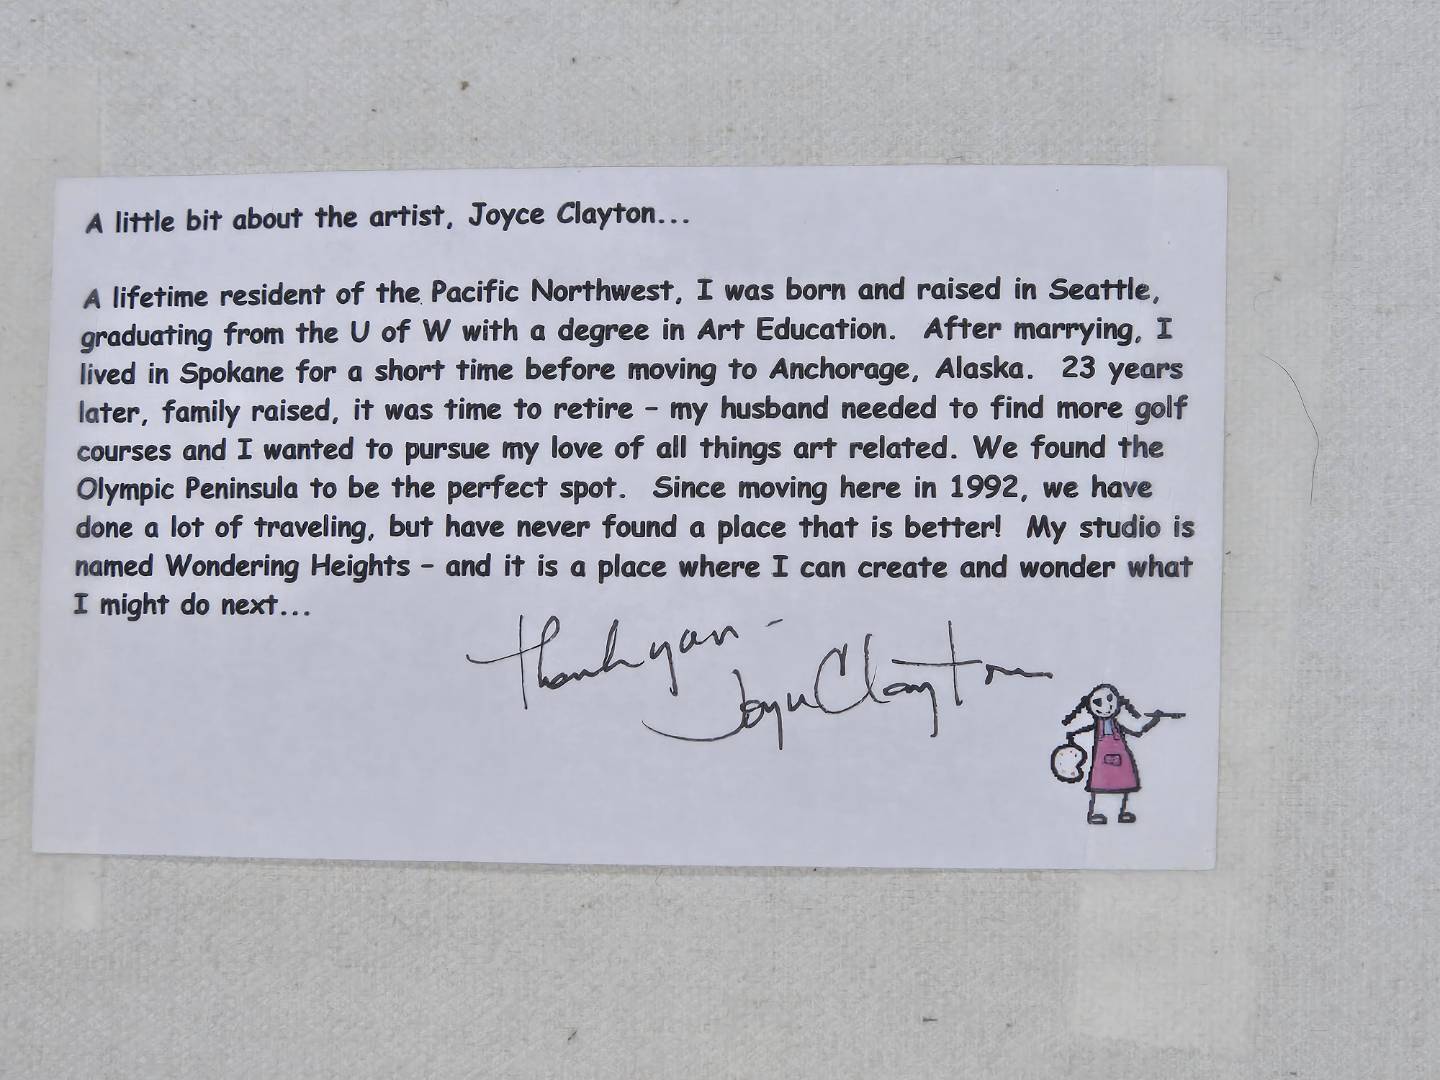 A little bit about the artist, Joyce Clayton...
A lifetime resident of the Pacific Northwest, I was born and raised in Seattle,
graduating from the U of W with a degree in Art Education.  After marrying, I
lived in Spokane for a short time before moving to Anchorage, Alaska.  23 years
later, family raised, it was time to retire – my husband needed to find more golf
courses and I wanted to pursue my love of all things art related. We found the
Olympic Peninsula to be the perfect spot.  Since moving here in 1992, we have
done a lot of traveling, but have never found a place that is better!  My studio is
named Wondering Heights – and it is a place where I can create and wonder what
I might do next...
Thank you –
Joyce Clayton